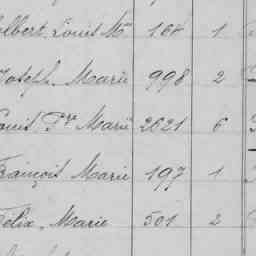 olbert, Louis Mie 164 1
Joseph, Marie 998 2
ouis Fr. Marie 2621 6
rançois Marie 197 1
Félix, Marie 501 2